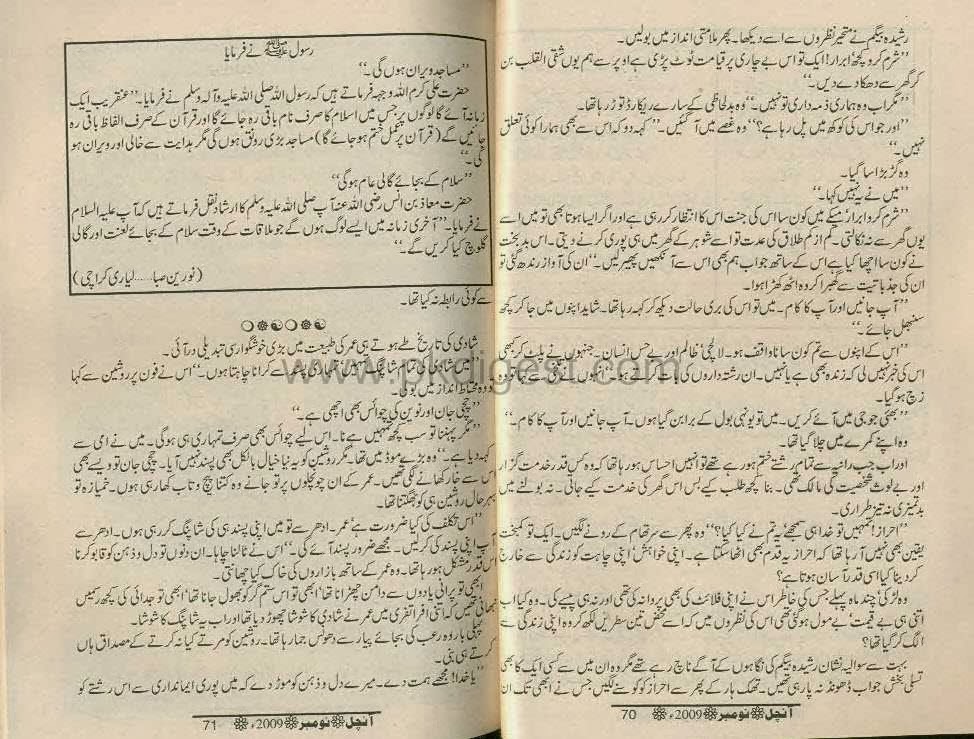 رشیدہ بیگم نے متحیر نظروں سے اسے دیکھا۔ پھر ملامتی انداز میں بولیں۔
”شرم کرو کچھ ابرار! ایک تو اس بے چاری پر قیامت ٹوٹ پڑی ہے اوپر سے ہم یوں شقی القلب بن
کر گھر سے دھکا دے دیں۔“
”مگر اب وہ ہماری ذمہ داری تو نہیں۔“ وہ بدلحاظی کے سارے ریکارڈ توڑ رہا تھا۔
”اور جو اس کی کوکھ میں پل رہا ہے؟“ وہ غصے میں آ گئیں۔ ”کہہ دو کہ اس سے بھی ہمارا کوئی تعلق
نہیں۔“
وہ گڑبڑا سا گیا۔
”میں نے یہ نہیں کہا۔“
”شرم کرو ابرار! میکے میں کون سا اس کی جنت اس کا انتظار کر رہی ہے اور اگر ایسا ہوتا بھی تو میں اسے
یوں گھر سے نہ نکالتی۔ کم از کم طلاق کی عدت تو اسے شوہر کے گھر میں ہی پوری کرنے دیتی۔ اس بدبخت
نے کون سا اچھا کیا ہے اس کے ساتھ جو اب ہم بھی اس سے آنکھیں پھیر لیں۔“ ان کی آواز رندھ گئی تو
ان کی جذباتیت سے گھبرا کر وہ اٹھ کھڑا ہوا۔
”آپ جانیں اور آپ کا کام۔ میں تو اس کی بری حالت دیکھ کر کہہ رہا تھا۔ شاید اپنوں میں جا کر کچھ
سنبھل جائے۔“
”اس کے اپنوں سے تم کون سا ناواقف ہو۔ لالچی‘ ظالم اور بے حس انسان۔ جنہوں نے پلٹ کر بھی
اس کی خبر نہیں لی کہ زندہ بھی ہے یا نہیں۔ ان رشتہ داروں کی بات کرتے ہو۔“
زچ ہو گیا۔
”بھئی جو جی میں آئے کریں۔ میں تو یونہی بول کے برا بن گیا ہوں۔ آپ جانیں اور آپ کا کام۔“
وہ اپنے کمرے میں چلا گیا تھا۔
اور اب جب رانیہ سے تمام رشتے ختم ہو رہے تھے تو انہیں احساس ہو رہا تھا کہ وہ کس قدر خدمت گزار
اور بے لوث شخصیت کی مالک تھی۔ بنا کچھ طلب کیے بس اس گھر کی خدمت کیے جاتی۔ نہ بولنے میں
بدتمیزی نہ تیز طراری۔
”احراز! تمہیں تو خدا ہی سمجھے یہ تم نے کیا کیا؟“ وہ پھر سے سر تھام کے رونے لگیں۔ ایک تو کمبخت
یقین بھی نہیں آ رہا تھا کہ احراز یہ قدم بھی اٹھا سکتا ہے۔ اپنی خواہش‘ اپنی چاہت کو زندگی سے خارج
کر دینا کیا اسی قدر آسان ہوتا ہے؟
وہ لڑکی‘ چند ماہ پہلے جس کی خاطر اس نے اپنی فلائٹ کی بھی پروا نہ کی تھی اور نہ ہی پیسے کی۔ وہ کیا اب
اتنی ہی بے قیمت‘ بے مول ہو گئی تھی اس کی نظروں میں کہ اسے محض تین سطریں لکھ کر وہ اپنی زندگی سے
الگ کر گیا تھا؟
بہت سے سوالیہ نشان رشیدہ بیگم کی نگاہوں کے آگے ناچ رہے تھے مگر وہ ان میں سے کسی ایک کا بھی
تسلی بخش جواب ڈھونڈ نہ پا رہی تھیں۔ تھک ہار کے پھر سے احراز کو کوسنے لگیں جس نے ابھی تک ان
آنچل نومبر 2009ء 70
رسول ﷺ نے فرمایا
”مساجد ویران ہوں گی۔“
حضرت علی کرم اللہ وجہہ فرماتے ہیں کہ رسول اللہ صلی اللہ علیہ وآلہ وسلم نے فرمایا۔ ”عنقریب ایک
زمانہ آئے گا لوگوں پر جس میں اسلام کا صرف نام باقی رہ جائے گا اور قرآن کے صرف الفاظ باقی رہ
جائیں گے (قرآن پر عمل ختم ہو جائے گا) مساجد بڑی رونق ہوں گی مگر ہدایت سے خالی اور ویران ہو
گی۔“
”سلام کے بجائے گالی عام ہو گی“
حضرت معاذ بن انس رضی اللہ عنہ آپ صلی اللہ علیہ وسلم کا ارشاد نقل فرماتے ہیں کہ آپ علیہ السلام
نے فرمایا۔ ”آخری زمانہ میں ایسے لوگ ہوں گے جو ملاقات کے وقت سلام کے بجائے لعنت اور گالی
گلوچ کیا کریں گے۔“
(نورین صبا......لیاری کراچی)
سے کوئی رابطہ نہ کیا تھا۔
شادی کی تاریخ طے ہوتے ہی عمر کی طبیعت میں بڑی خوشگوار سی تبدیلی در آئی۔
”میں شادی کی تمام شاپنگ تمہیں تمہاری پسند سے کرانا چاہتا ہوں۔“ اس نے فون پر روشین سے کہا
تو وہ محتاط انداز میں بولی۔
”چچی جان اور نوین کی چوائس بھی اچھی ہے۔“
”مگر پہننا تو سب کچھ تمہیں ہے نا۔ اس لیے چوائس بھی صرف تمہاری ہی ہو گی۔ میں نے امی سے
کہہ دیا ہے۔“ وہ بڑے موڈ میں تھا۔ مگر روشین کو یہ نیا خیال بالکل بھی پسند نہیں آیا۔ چچی جان تو ویسے بھی
اس سے خار کھانے لگی تھیں۔ عمر کے ان چونچلوں پر تو جانے وہ کتنا پیچ و تاب کھا رہی ہوں۔ خمیازہ تو
بہرحال روشین ہی کو بھگتنا تھا۔
”اس تکلف کی کیا ضرورت ہے عمر۔ ادھر سے تو میں اپنی پسند ہی کی شاپنگ کر رہی ہوں۔ ادھر سے
آپ اپنی پسند کی کریں۔ مجھے ضرور پسند آئے گی۔“ اس نے ٹالنا چاہا۔ ان دنوں تو دل و ذہن کو قابو کرنا
اس قدر مشکل ہو رہا تھا۔ وہ عمر کے ساتھ بازاروں کی خاک کیا چھانتی۔
ابھی تو پرانی یادوں سے دامن چھڑانا تھا‘ ابھی تو اس ستم گر کو بھول جانا تھا‘ ابھی تو جدائی کی کچھ رسمیں
نبھانی تھیں کہ اتنی افراتفری میں عمر نے شادی کا شوشا چھوڑ دیا تھا اور اب یہ شاپنگ کا شوشا۔
پہلی بار وہ رعب کی بجائے پیار سے دھونس جما رہا تھا۔ روشین کو مرتے کیا نہ کرتے کے مصداق ہاں
کرتے ہی بنی۔
”یا خدا! مجھے ہمت دے۔ میرے دل و ذہن کو موڑ دے کہ میں پوری ایمانداری سے اس رشتے کو
آنچل نومبر 2009ء 71
www.pkdigest.com